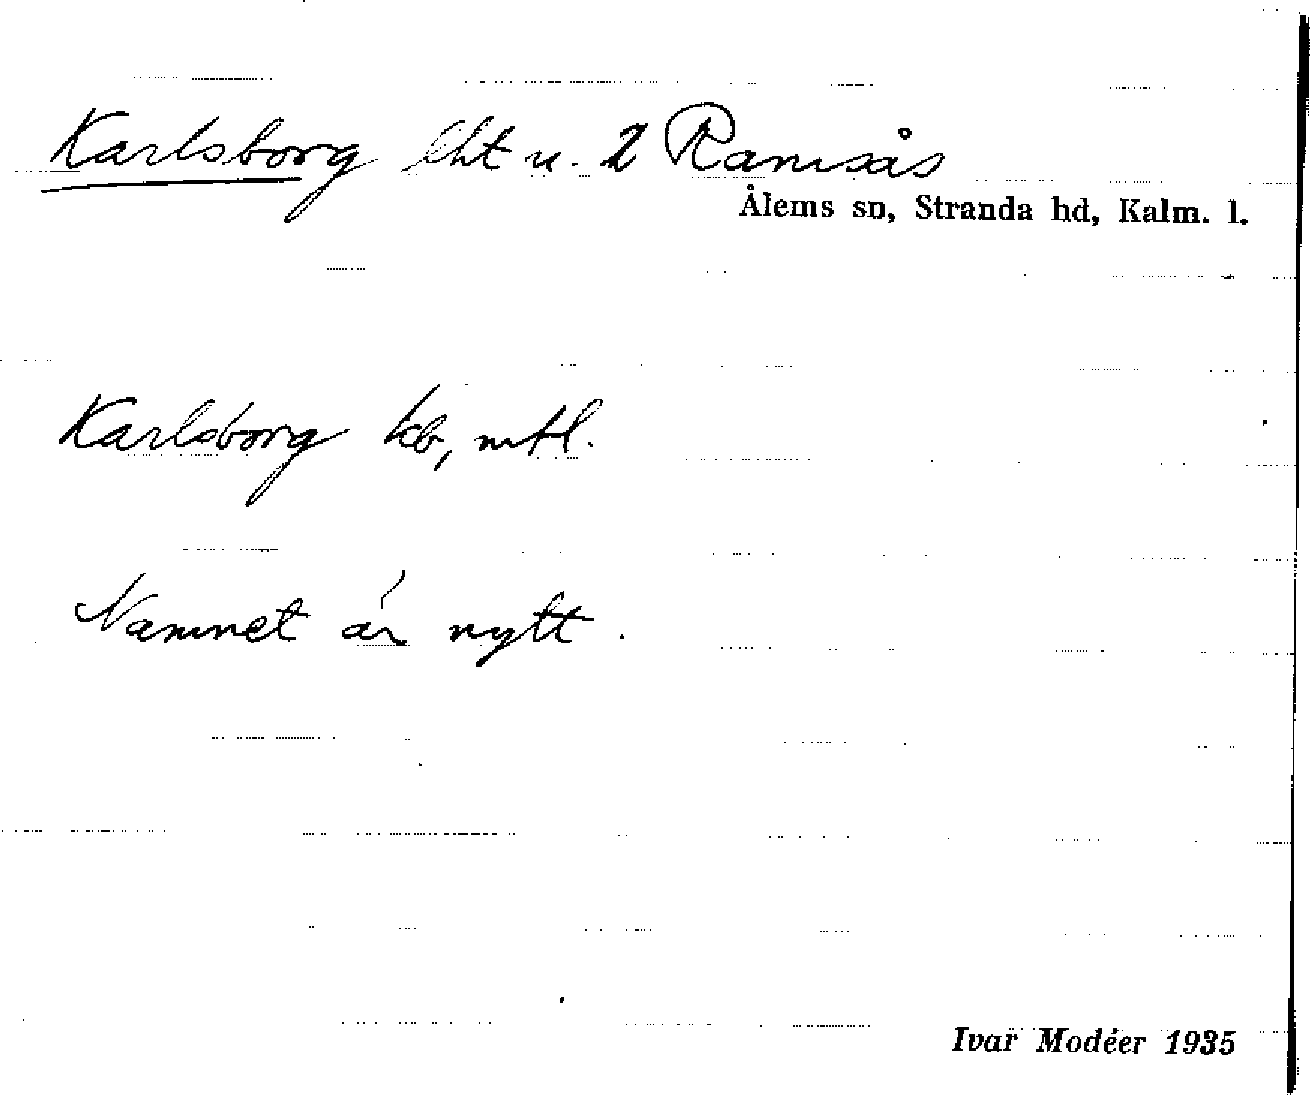 Karlsborg lht u. 2 Ramsås
Ålems sn, Stranda hd, Kalm. l.
Karlsborg kb, mtl.
Namnet är nytt.
Ivar Modéer 1935